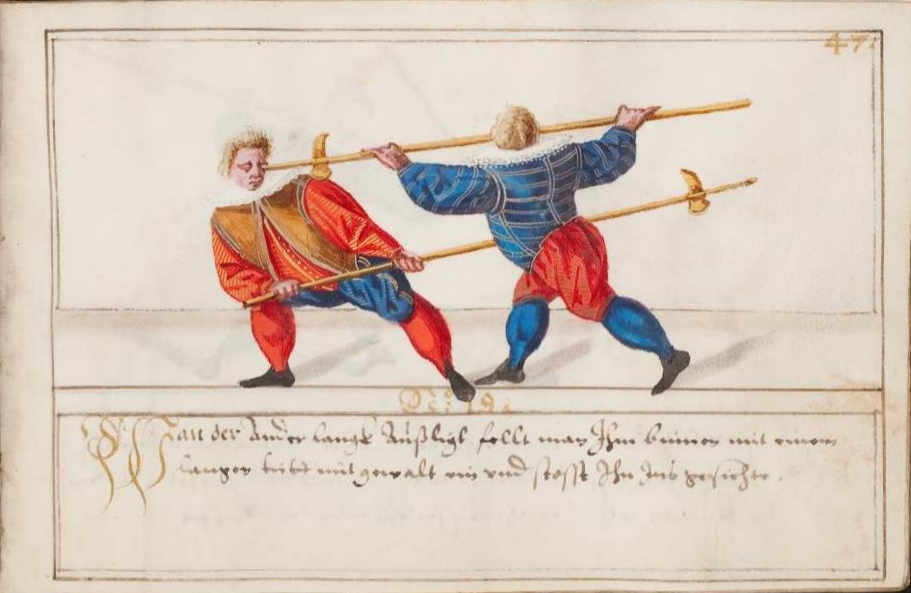 47.
No: 19.
Wan der Ander lange Außligt fellt man Ihm binnen mit einem
langen tritt mit gewalt ein vnd stosst Ihn Ins gesichte.